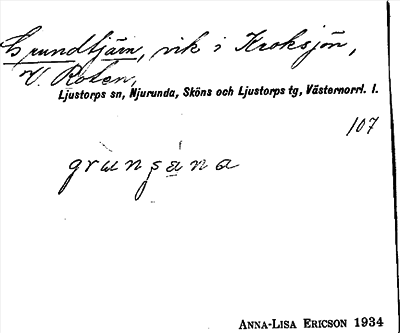 Grundtjärn, vik i Kroksjön,
V. Roten,
Ljustorps sn, Njurunda, Sköns och Ljustorps tg, Västernorrl. l.
107
ANNA-LISA ERICSON 1934